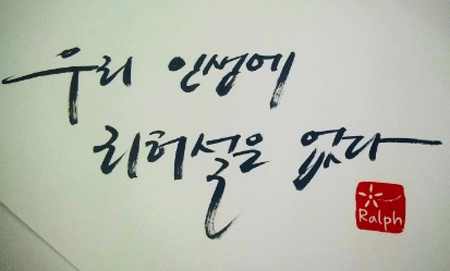 우리 인생에
리허설은 없다
Ralph